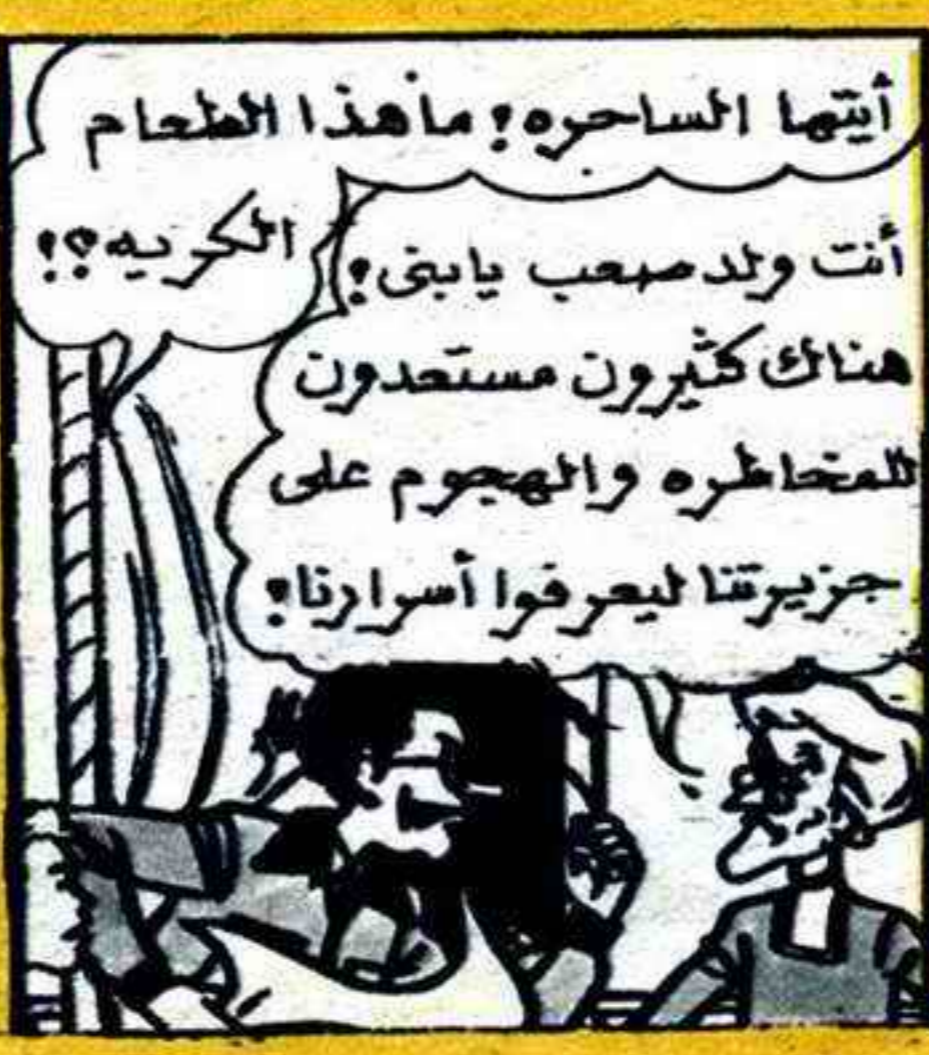 أيتها الساحره؟ ماهذا الطعام
الكريه؟!
أنت ولد صعب يابنى؟
هنالك كثيرون مستعدون
للمخاطره والهجوم على
جزيرتنا ليعرفوا أسرارنا؟